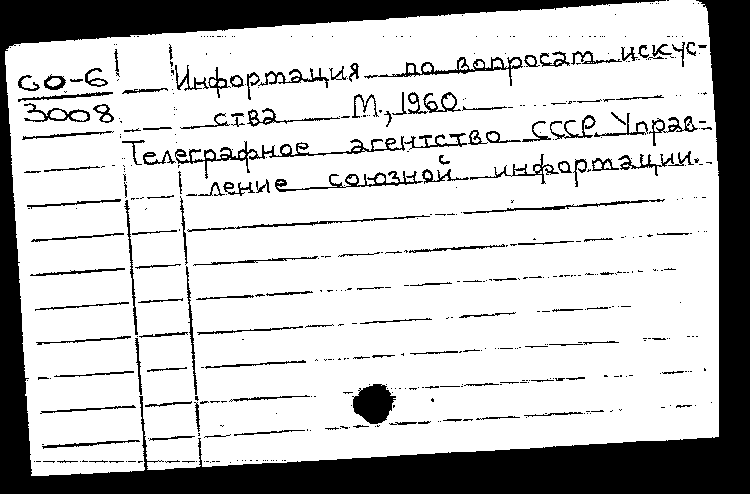 СО-6
3008
Информация по вопросам искус-
ства М., 1960.
Телеграфное агентство СССР. Управ-
ление союзной информации.